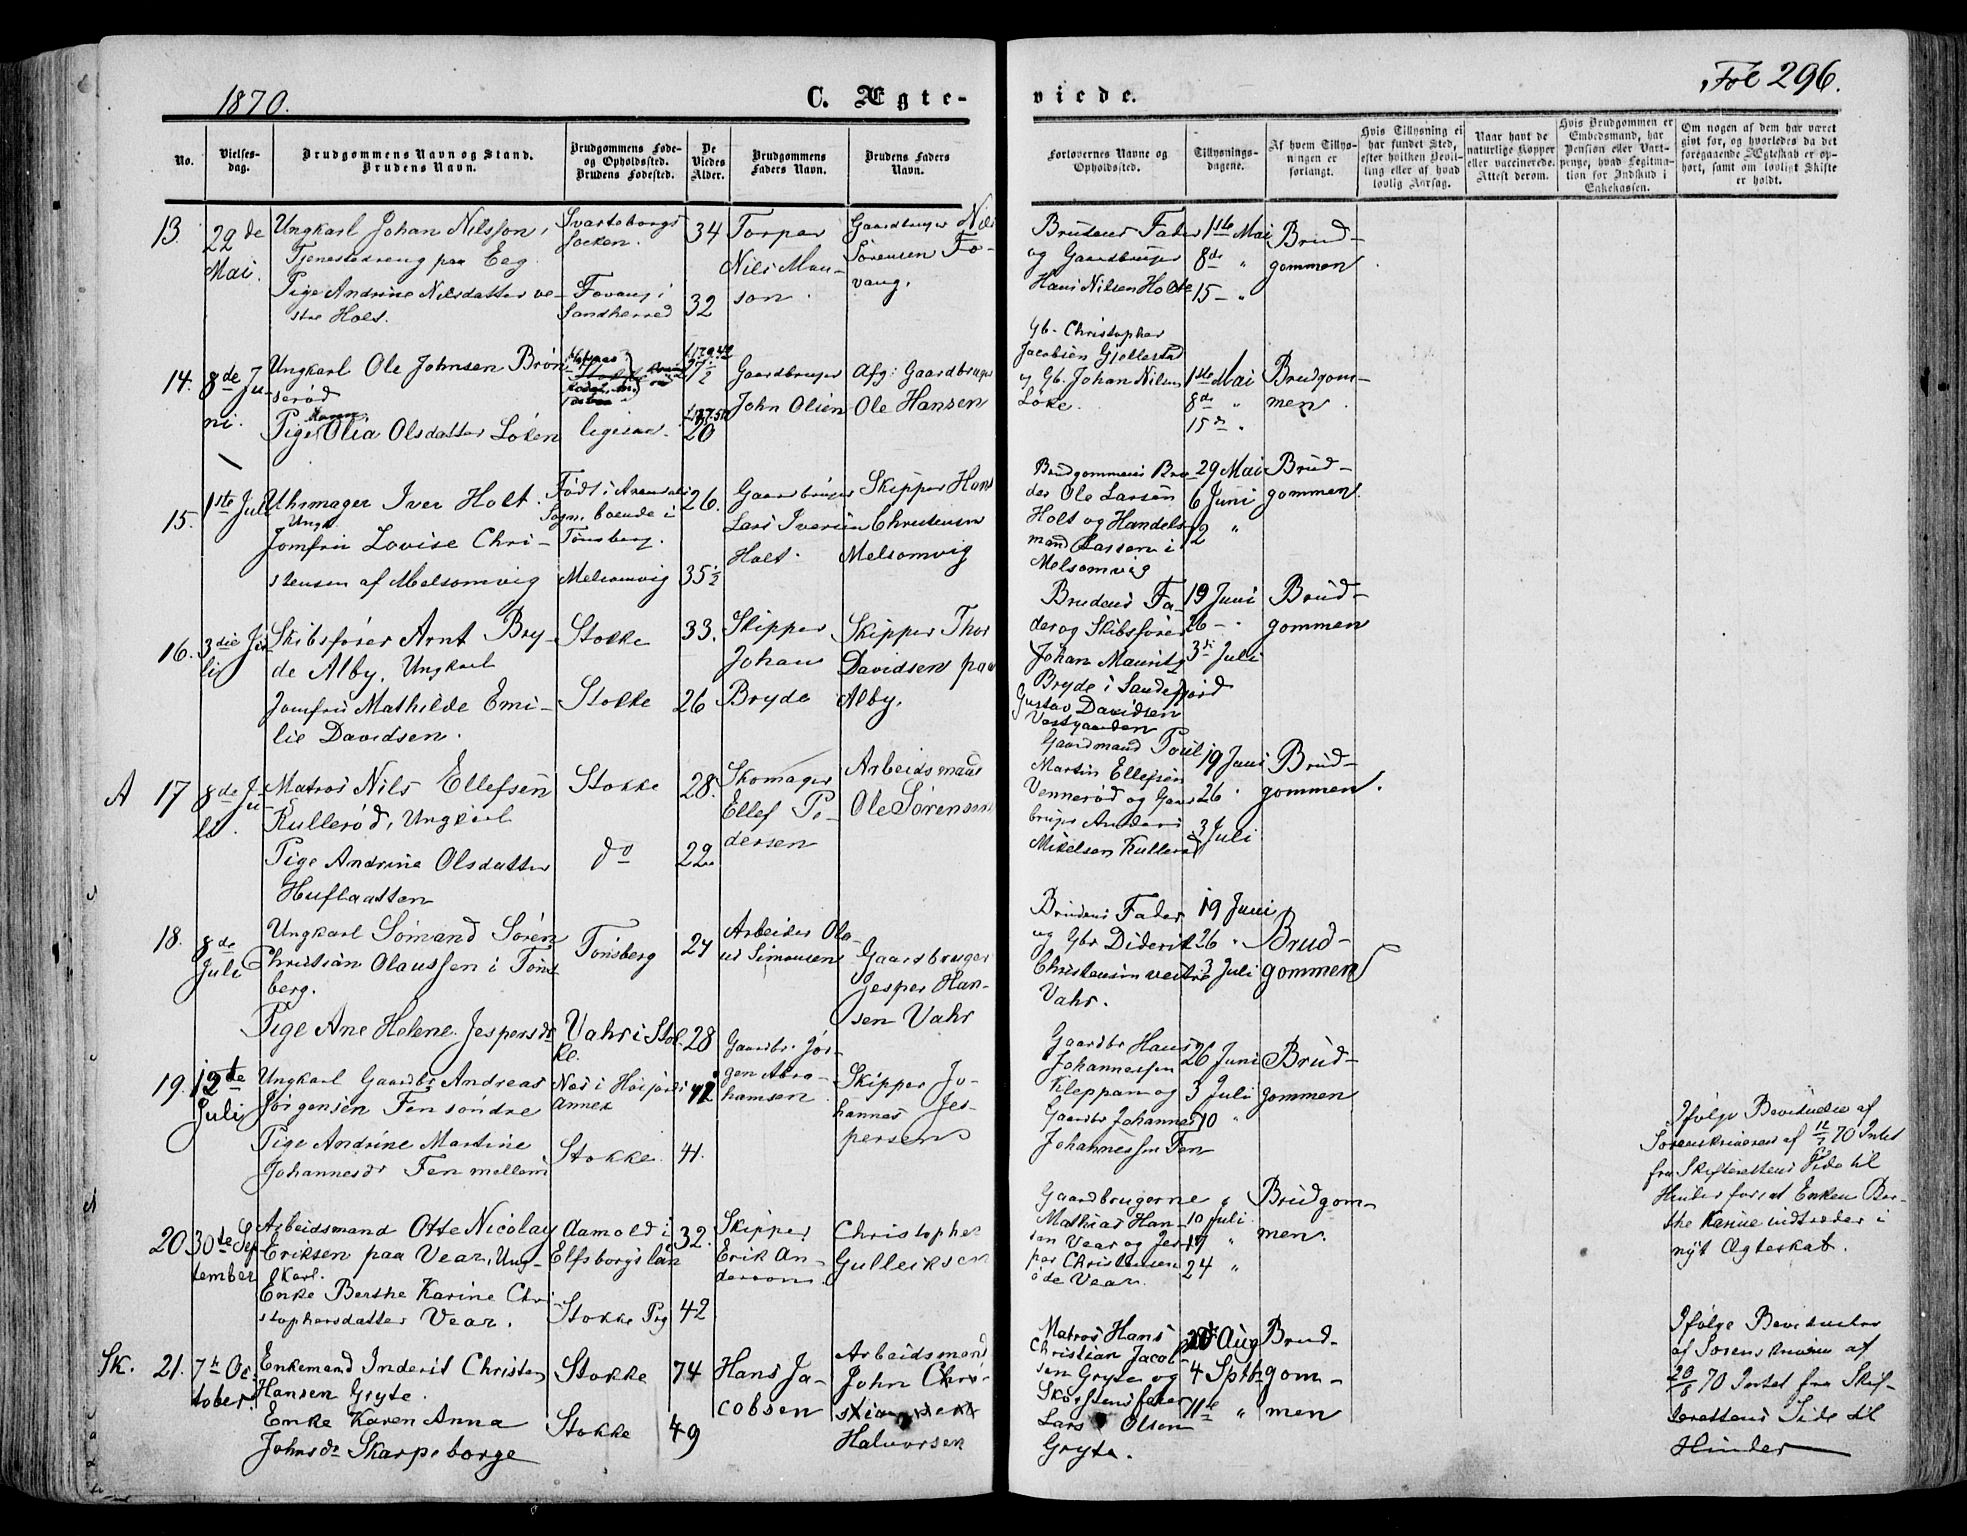 1870.
C. Ægte-
viede.
Fol 296.
No.
Vielses-
dag.
Brudgommens Navn og Stand.
Brudens Navn.
Brudgommens Føde-
og Opholdssted.
Brudens Fødested.
De
Viedes
Alder.
Brudgommens
Faders Navn.
Brudens Faders
Navn.
Forlovernes Navne og
Opholdssted.
Tillysnings-
dagene.
Af hvem Tillys-
ningen er
forlangt.
Hvis Tillysning ei
har fundet Sted,
efter hvilken Bevil-
ling eller af hvad
lovlig Aarsag.
Naar havt de
naturlige Kopper
eller vaccinerede.
Attest derom.
Hvis Brudgommen er
Embedsmand, har
Pension eller Vart-
penge, hvad Legitima-
tion for Indskud i
Enkekassen.
Om nogen af dem har været
gift før, og hvorledes da det
foregaaende Ægteskab er op-
hørt, samt om lovligt Skifte
er holdt.
13.
22de
Mai.
Ungkarl Johan Nilsson,
Tjenestedreng paa Eeg
Pige Andrine Nilsdatter ve-
stre Holt.
Svarteborgs
Socken.
Fovang i
Sandherred
34
32
Torper
Nils Mon-
son.
Gaardbruger Nils
Sørensen Fo-
vang.
Brudens Fader
og Gaardbruger
Hans Nilsen Holte
1ste Mai
8de "
15 - "
Brud-
gommen
14.
8de Ju-
ni.
Ungkarl Ole Johnsen Brøn-
serød
Pige Karen Olia Olsdatter Løken
ligesaa.
27 1/2
20
Gaardbruger
John Olsen
Afg: Gaardbruger
Ole Hansen
Gb. Christopher
Jacobsen Gjellestad
og Gb. Johan Nilsen
Løke.
1ste Mai
8de "
15de "
Brudgom-
men.
15.
1ste Juli
Uhrmager Iver Holt.
Ungk.
Jomfru Lovise Chri-
stensen af Melsomvig
Født i Arendals
Sogn, boende i
Tønsberg.
Melsomvig
26.
35 1/2
Gaardbruger
Lars Iversen
Holt.
Skipper Hans
Christensen
Melsomvig
Brudgommens Bro-
der Ole Larsen
Holt og Handels-
mand Larsen i
Melsomvig
29 Mai
6 Juni
12 "
Brud-
gommen.
16.
3die Ju-
li
Skibsfører Arnt Bry-
de Alby, Ungkarl
Jomfru Mathilde Emi-
lie Davidsen.
Stokke
Stokke
33.
26
Skipper
Johan
Bryde
Skipper Thor
Davidsen paa
Alby.
Brudens Fa-
der og Skibsfører
Johan Mauritz
Bryde i Sandefjord
Gustav Davidsen
Vestgaarden
19 Juni
26 - "
3di Juli
Brud-
gommen
A
17
8de Ju-
li.
Matros Nils Ellefsen
Kullerød, Ungkarl
Pige Andrine Olsdatter
Huflaatten
Stokke
do
28.
22.
Skomager
Ellef Pe-
dersen
Arbeidsmand
Ole Sørensen
Gaardmand Poul
Martin Ellefsen
Vennerød og Gaard-
bruger Anders
Mikelsen Kullerød
19 Juni
26 "
3 Juli
Brud-
gommen.
18.
8de
Juli
Ungkarl Sømand Søren
Christian Olaussen i Tøns-
berg.
Pige Ane Helene Jespersdr
Tønsberg
Vahr i Stok-
ke.
24
28
Arbeider Ola-
us Simonsen
Gaardbruger
Jesper Han-
sen Vahr
Brudens Fader
og Gbr Diderik
Christensen vestre
Vahr.
19 Juni
26 "
3 Juli
Brud-
gommen
19.
12te
Juli
Ungkarl Gaardbr Andreas
Jørgensen Fen søndre
Pige Andrine Martine
Johannesdr Fen mellem
Næs i Høijords
Annex
Stokke.
42
41.
Gaardbr. Jør-
gen Abra-
hamsen
Skipper Jo-
hannes Jes-
persen
Gaardbr Hans
Johannessen
Kleppan og
Gaardbr Johannes
Johannessen Fen
26 Juni
3 Juli
10 "
Brud-
gommen
20
30te Sep-
tember
Arbeidsmand Otte Nicolay
Eriksen paa Vear, Ung-
karl.
Enke Berthe Karine Chri-
stophersdatter Vear.
Aamold i
Elfsborgs län
Stokke Pg
32.
42
Skipper
Erik An-
dersson
Christopher
Gulleiksen
Gaardbrugerne
Mathias Han-
sen Vear og Jes-
per Christensen
øde Vear.
10 Juli
17 "
24 "
Brudgom-
men.
Ifølge Bevidnelse af
Sorenskriveren af 12/7 70 Intet
fra Skifterettens Side til
Hinder for at Enken Ber-
the Karine indtræder i
nyt Ægteskab.
Sk.
21.
7de Oc-
tober
Enkemand Inderst Christen
Hansen Gryte.
Enke Karen Anna
Johnsdr Skarpeborge
Stokke
Stokke
74
49
Hans Ja-
cobsen
Arbeidsmand
John Chri-
stiansen
Halvorsen
Matros Hans
Christian Jacob-
sen Gryte og
Lars Olsen
Gryte.
Aug
4 Sptb
11te "
Brud-
gom-
men
Ifølge Bevidnelse
af Sorenskriveren af
20/8 70 Intet fra Skif-
terettens Side til
Hinder